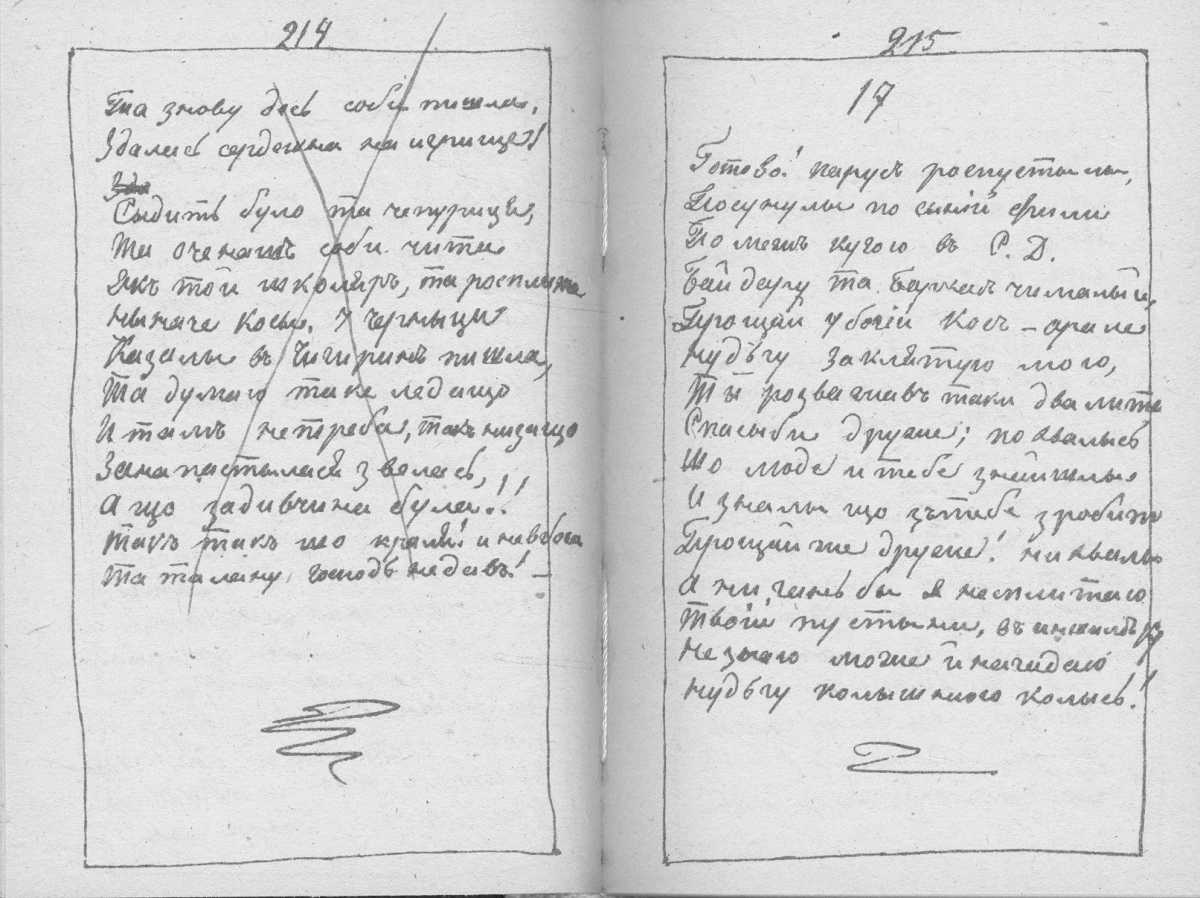 214
Та знову десь соби пишла,
Здалась сердешна на игрище!
Зда
Сыдить було та чепурицця,
Та оченашъ соби чита
Якъ той школяръ, та росплита
Ныначе косы. У черныци
Казалы въ Чигиринъ пишла,
Та думаю таке ледащо
И тамъ нетреба, такъ низащо
Занапастылася звелась,
А що задивчина була!!!
Такъ такъ що краля! и невбога
Та талану, господь недавъ! —
215
17
Готово! парусъ роспустылы,
Посунулы по синій хвили
По межъ кугою въ С. Д.
Байдару та баркасъ чималый,
Прощай убогій Кос-арале
Нудьгу заклятую мою,
Ты розважавъ таки два лита
Спасыби друже; похвалысь
Що люде и тебе знайшлы
И зналы що зътебе зробыты
Прощай же друже! ни хвалы
А ни ганьбы я несплитаю
Твоій пустыни, въ иншимъ
Незнаю може й нагадаю
Нудьгу колышнюю колысь!